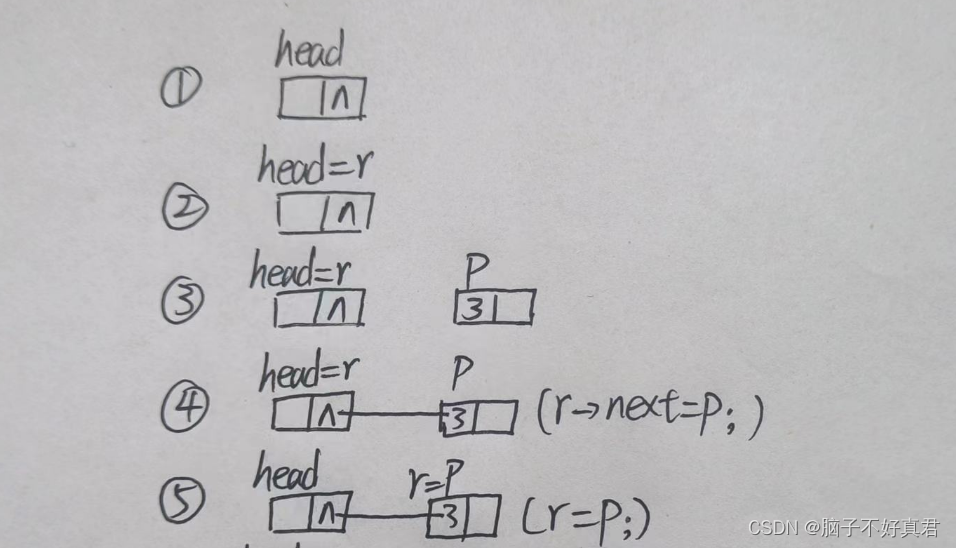 head
① ∧
head=r
② ∧
head=r P
③ ∧ 3
head=r P
④ ∧ 3 (r→next=p;)
head r=P
⑤ ∧ 3 (r=p;)
CSDN @脑子不好真君